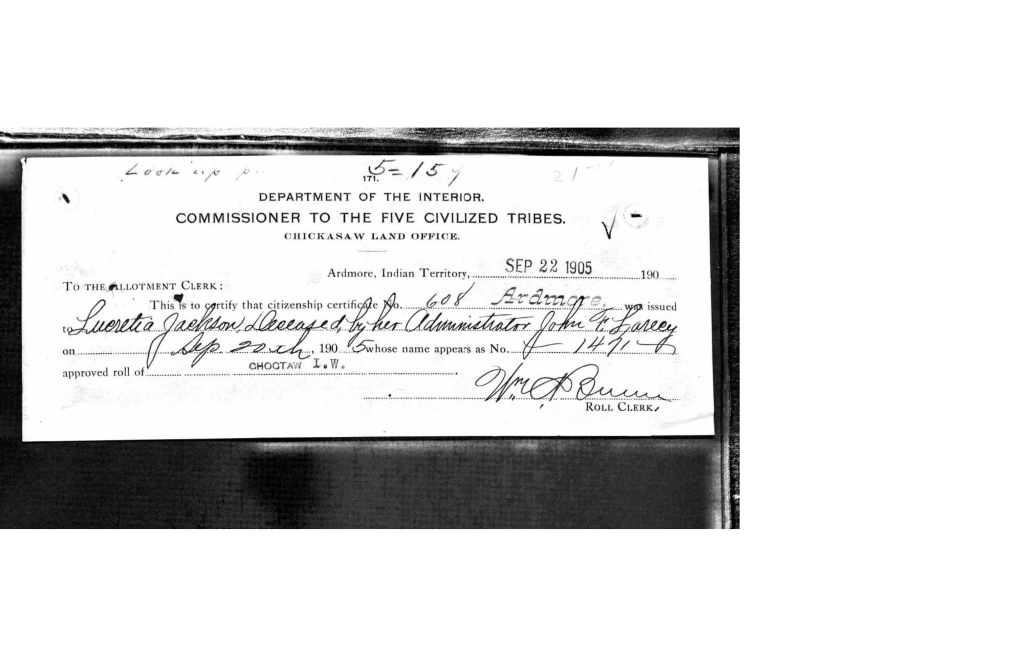 Look up
5-15
171.
DEPARTMENT OF THE INTERIOR.
COMMISSIONER TO THE FIVE CIVILIZED TRIBES.
CHICKASAW LAND OFFICE.
Ardmore, Indian Territory, SEP 22 1905 190
TO THE ALLOTMENT CLERK:
This is to certify that citizenship certificate No. 608 Ardmore, was issued
to Lucretia Jackson, Deseased, by her Administrator John F.
on Sep 20th, 1905 whose name appears as No. 1471
approved roll of CHOCTAW I.W.
Wm
ROLL CLERK,